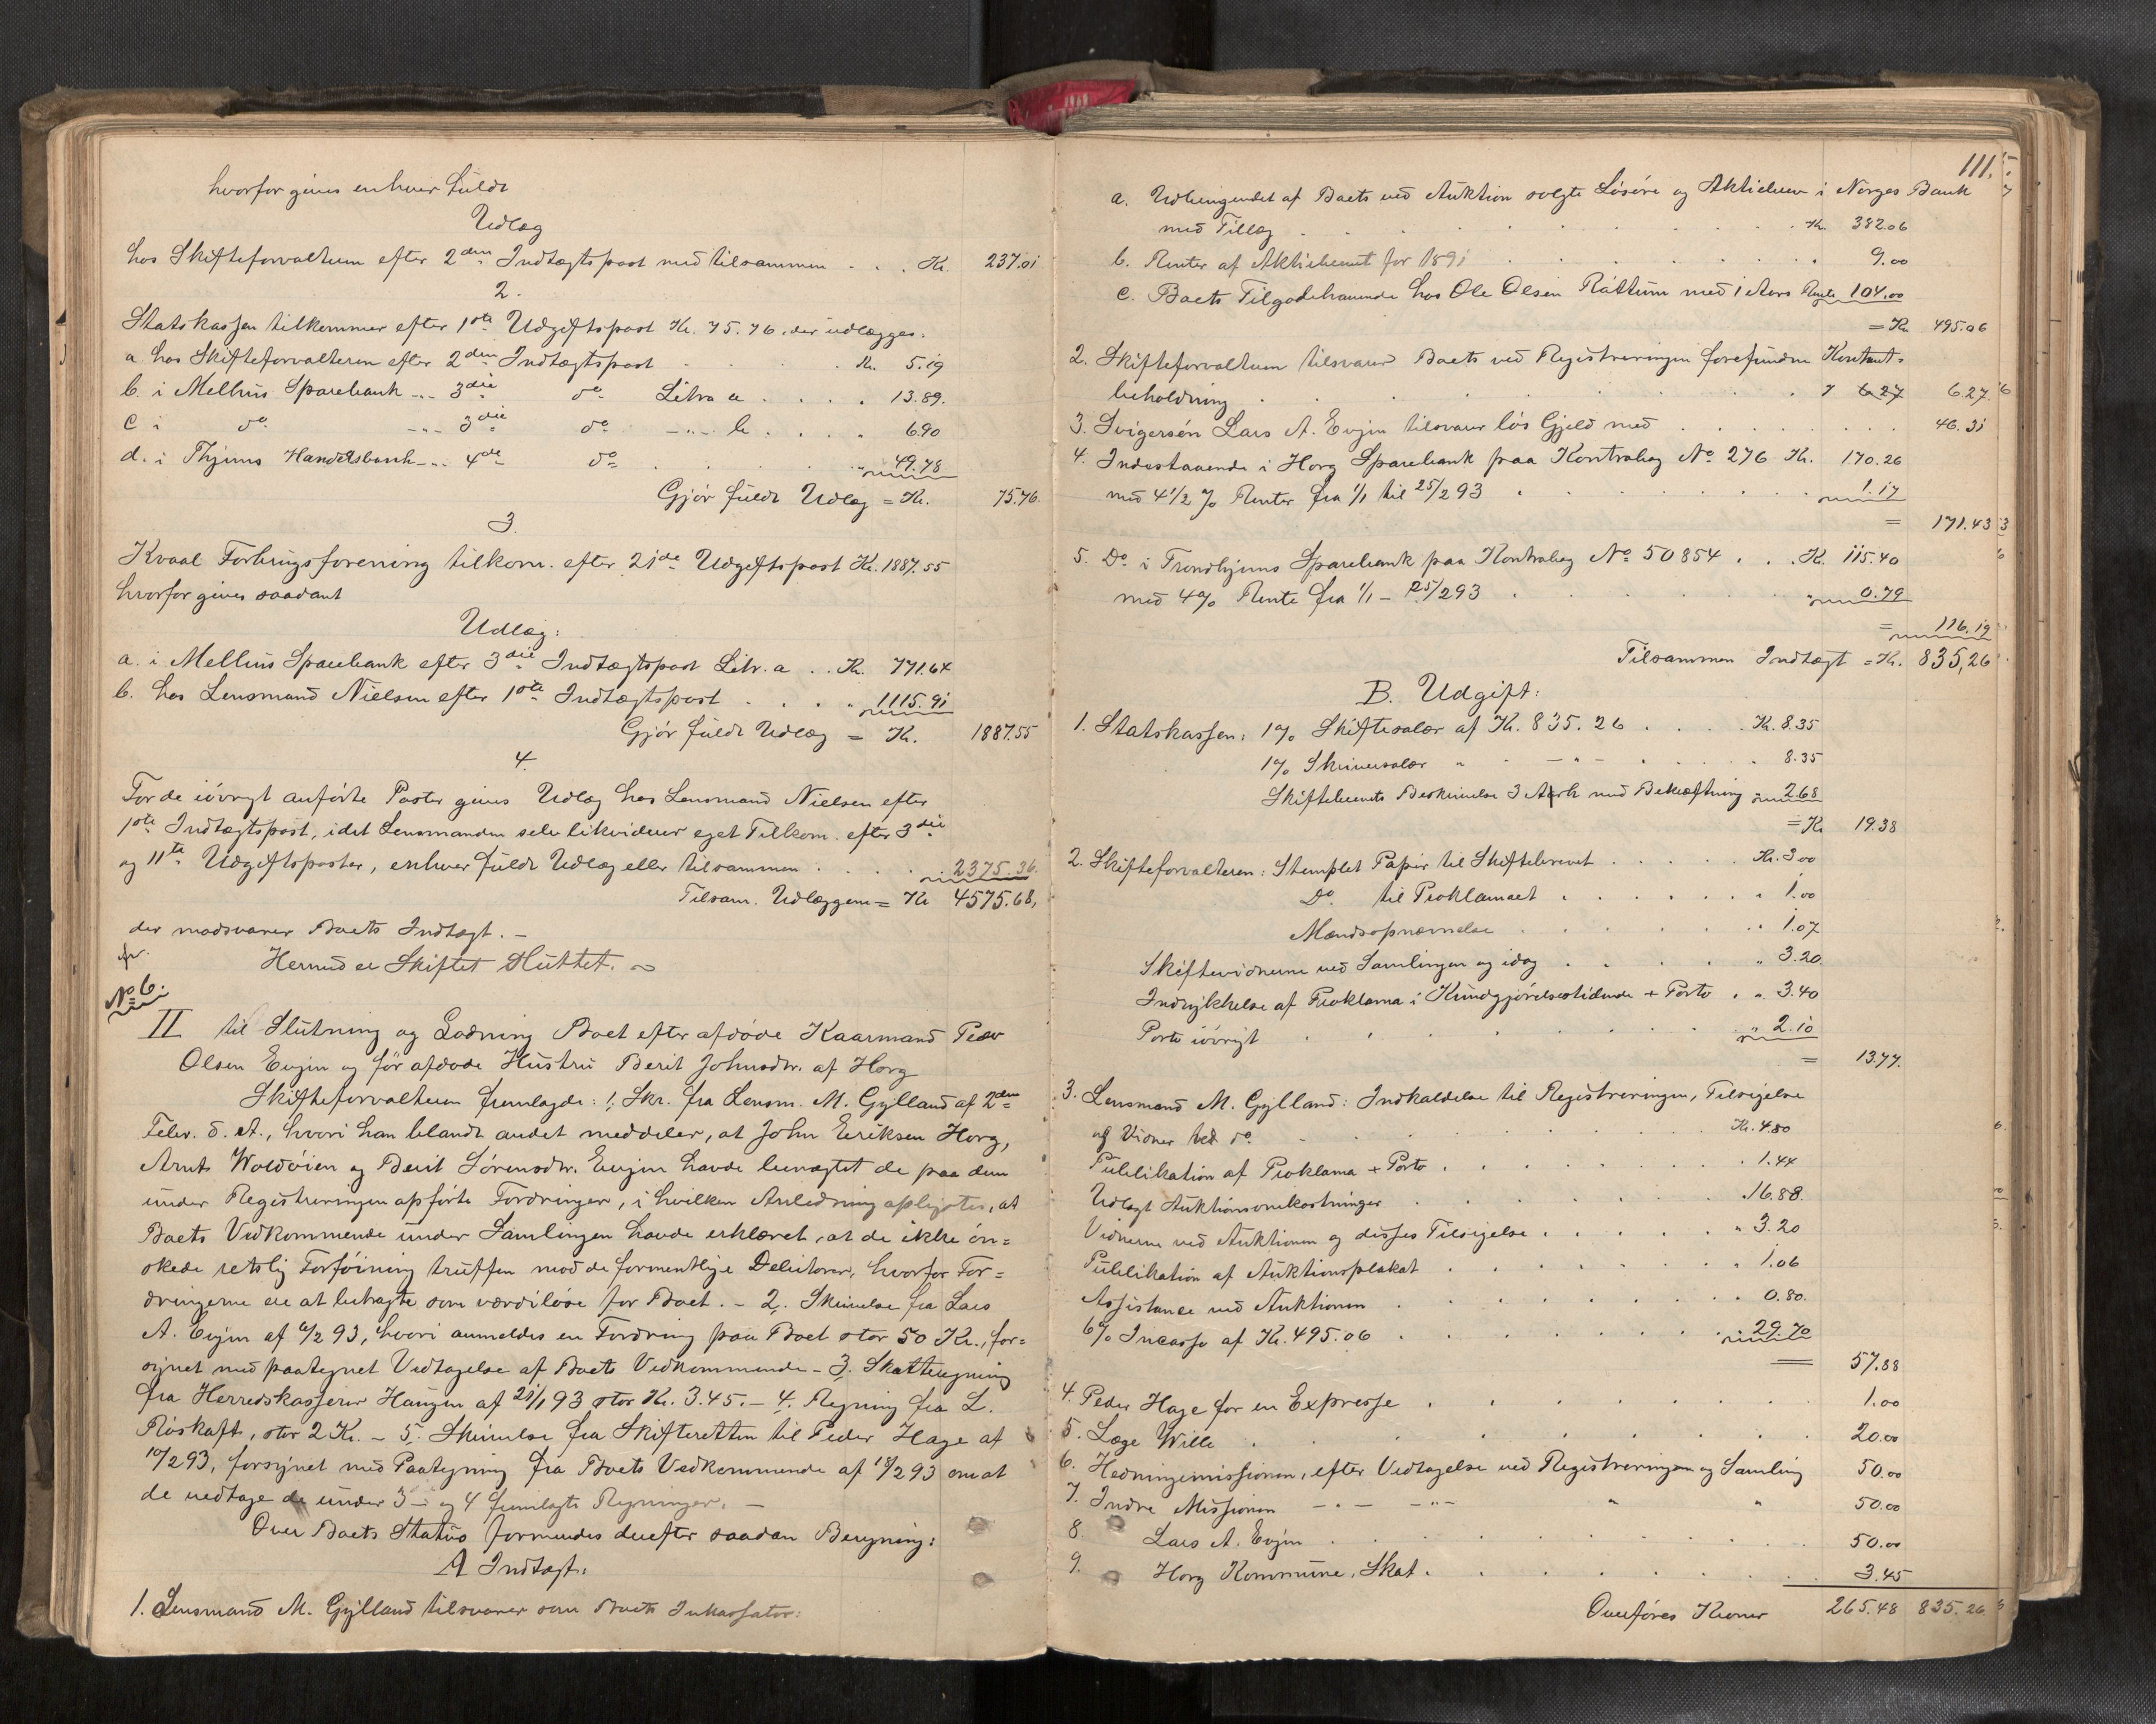 hvorfor gives enhver fuldt
Udlæg
hos Skifteforvalteren efter 2den Indtægtspost med tilsammen . . . Kr. 237.01
2.
Statskassen tilkommer efter 1ste Udgiftspost Kr. 75.76. der udlægges:
a. hos Skifteforvalteren efter 2den Indtægtspost . . . Kr. 5.19
b. i Melhus Sparebank -"- 3die do Litra a . . . . 13.89.
c i do -"- 3die do -"- b . . . . 6.90
d. i Thjems Handelsbank -"- 4de do . . . " 49.78
Gjør fuldt Udlæg = Kr. 75.76.
3.
Kvaal Forbrugsforening tilkom. efter 21de Udgiftspost Kr. 1887.55
hvorfor gives saadant
Udlæg:
a. i Melhus Sparebank efter 3die Indtægtspost Litr. a . . Kr. 771.64
b. hos Lensmand Nielsen efter 1ste Indtægtspost . . . . " 1115.91
Gjør fuldt Udlæg = Kr. 1887.55
4.
For de iøvrigt anførte Poster gives Udlæg hos Lensmand Nielsen efter
1ste Indtægtspost, idet Lensmanden selv likviderer eget Tilkom. efter 3die
og 11te Udgiftsposter, enhver fuldt Udlæg eller tilsammen . . . . 2375.36.
Tilsam. Udlæggene = Kr 4575.68,
der modsvarer Boets Indtægt. -
Hermed er Skiftet sluttet.
No 6.
II til Slutning og Lodning Boet efter afdøde Kaarmand Peder
Olsen Evjen og før afdøde Hustru Berit Johnsdtr. af Horg
Skifteforvalteren fremlagde: 1, Skr. fra Lensm. M. Gylland af 2den
Febr. d. A., hvori han blandt andet meddeler, at John Eriksen Horg,
Arnt Woldøien og Berit Sørensdtr. Evjen havde benægtet de paa dem
under Registreringen opførte Fordringer, i hvilken Anledning oplystes, at
Boets Vedkommende under Samlingen havde erklæret, at de ikke øn=
skede retslig Forføining truffen mod de formentlige Debitorer, hvorfor For=
dringerne er at betragte som værdiløse for Boet. - 2, Skrivelse fra Lars
A. Evjen af 6/2 93, hvori anmeldes en Fordring paa Boet stor 50 Kr., for=
synet med paategnet Vedtagelse af Boets Vedkommende - 3, Skatteregning
fra Herredskasserer Haugen af 21/1 93 stor Kr. 3.45. - 4, Regning fra L.
Röskaft, stor 2 Kr. - 5. Skrivelse fra Skifteretten til Peder Hage af
10/2 93, forsynet med Paategning fra Boets Vedkommende af 18/2 93 om at
de vedtage de under 3 og 4 fremlagte Regninger. -
Over Boets Status formendes derefter saadan Beregning:
A Indtægt:
1. Lensmand M. Gylland tilsvarer som Boets Inkassator:
111.
a. Udbringendet af Boets ved Auktion solgte Løsøre og Aktiebrev i Norges Bank
med Tillæg . . . Kr. 382.06
b. Renter af Aktiebrevet for 1891 . . . 9.00
c. Boets Tilgodehavende hos Ole Olsen Råttum med 1 Aars Rente 104.00
= Kr. 495.06
2. Skifteforvalteren tilsvarer Boets ved Registreringen forefundne Kontant-
beholdning . . . " 6.27 6.27.
3. Svigersøn Lars A. Evjen tilsvarer løs Gjeld med . . . 46.31
4. Indestaaende i Horg Sparebank paa Kontrabog No 276 Kr. 170.26
med 4 1/2 % Renter fra 1/1 til 25/2 93 . . . " 1.17
= 171.43
5. Do i Trondhjems Sparebank paa Kontrabog No 50854 . . . K. 115.40
med 4% Rente fra 1/1 - 25/2 93 . . . " 0.79
= 116.19
Tilsammen Indtægt = Kr. 835,26
B. Udgift:
1. Statskassen: 1% Skiftesalær af Kr. 835.26 . . . . Kr. 8.35
1% Skriversalær " - " - . . . " 8.35
Skiftebrevets Beskrivelse 3 Ark med Bekræftning " 2.68
= Kr 19.38
2. Skifteforvalteren: Stemplet Papir til Skiftebrevet . . . . . Kr. 3.00
Do til Proklamaet . . . . . . " 1.00
Mændsopnævnelse . . . " 1.07
Skiftevidnerne ved Samlingen og idag . . . " 3.20.
Indrykkelse af Proklama i Kundgjørelsestidende + Porto . " 3.40
Porto iøvrigt . . . " 2.10
= 13.77.
3. Lensmand M. Gylland: Indkaldelse til Registreringen, Tilsigelse
af Vidner ved do . . . Kr. 4.80
Publikation af Proklama + Porto . . . " 1.44
Udlagt Auktionsomkostninger . . . " 16.88.
Vidnerne ved Auktionen og disses Tilsigelse . . . " 3.20
Publikation af Auktionsplakat . . . " 1.06
Assistance ved Auktionen . . . " 0.80.
6% Incasso af Kr. 495.06 . . . " 29.70
= 57.88
4. Peder Hage for en Expresse . . . 1.00
5. Læge Wille . . . 20.00
6. Hedningemissionen, efter Vedtagelse ved Registreringen og Samling 50.00
7. Indre Missionen -"- -"- " " 50.00
8. Lars A. Evjen . . . 50.00
9. Horg Kommune, Skat . . . 3.45
Overføres Kroner 265.48 835.26